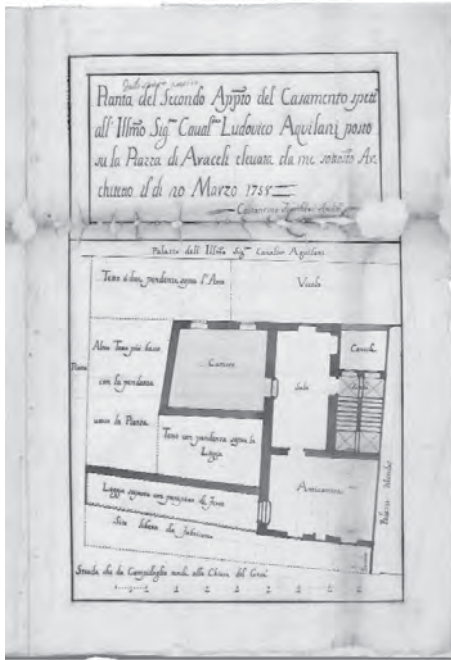 Pianta del Secondo Appto del Casamento spett
all' Illmo Sigr Cavalr Ludovico Aquilani posto
su la Piazza di Araceli elevata da me sottto Ar
chitetto il dì 20 Marzo 1755
Palazzo dell' Illmo Sigr Cavalier Aquilani
Tetto a due pendenze sopra l'Arco
Vicolo
Piazza
Altro Tetto più basso
con la pendenza
verso la Piazza
Camera
Sala
Tetto con pendenza sopra la
Loggia
Anticamera
Loggia scoperta con parapetto di ferro
Sito libero da fabricare
Strada che da Campidoglio tende alla Chiesa del Gesù